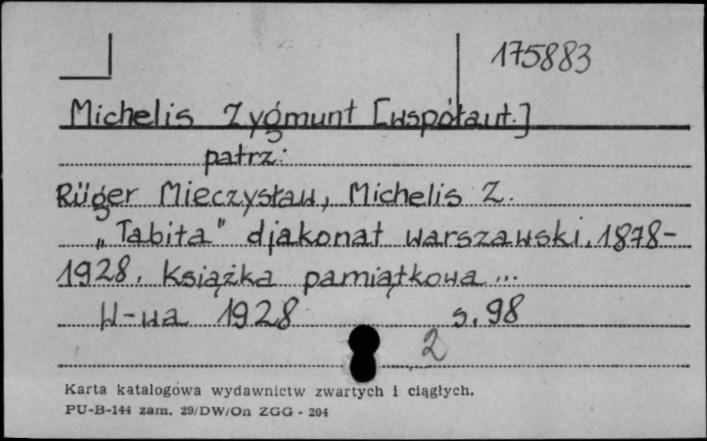 175883
Michelis Zygmunt [współaut.]
patrz:
Rüger Mieczysław, Michelis Z.
„Tabita" djakonat warszawski. 1878-
1928. Książka pamiątkowa ...
W-wa 1928 s. 98
2
Karta katalogowa wydawnictw zwartych i ciągłych.
PU-B-144 zam. 29/DW/On ZGG - 204